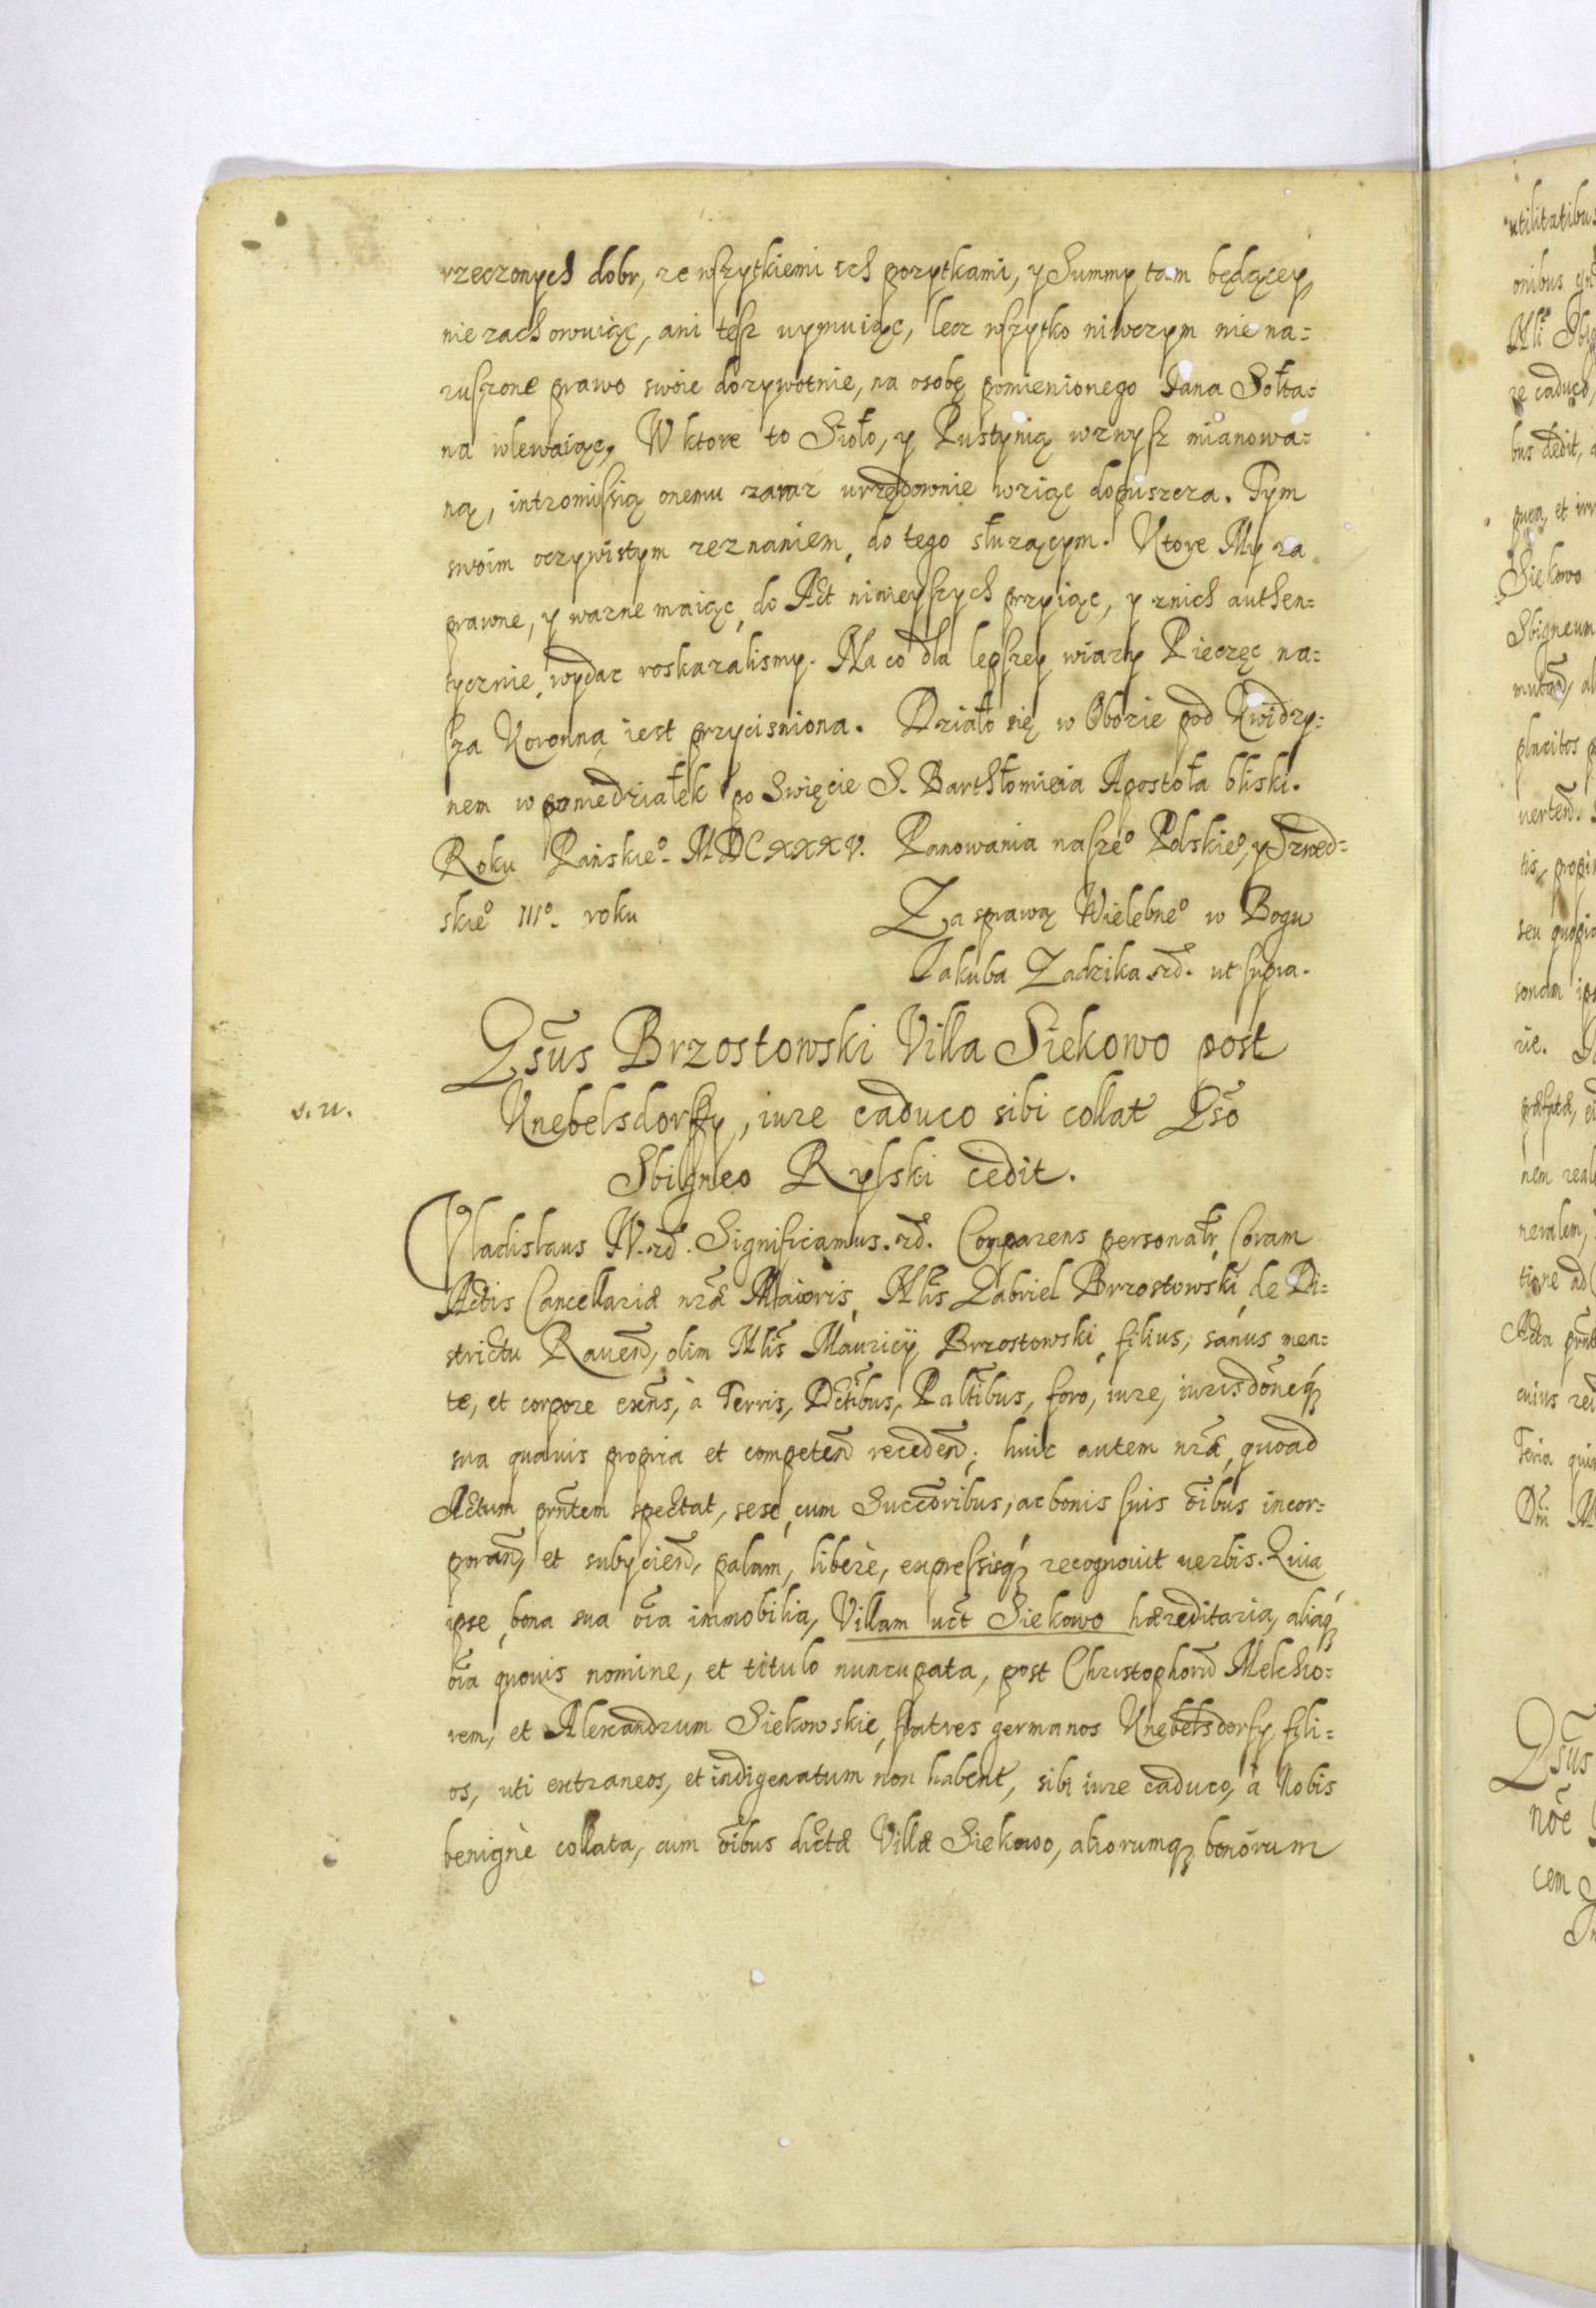 rzeczonych dobr, ze wszytkiemi ich pozytkami, y Summy tam będącey,
nie zachowuiąc, ani tesz uymuiąc, lecz wszytko niwczym nie na=
ruszone prawo swoie dozywotnie, na osobę pomienionego Jana Sołta=
na wlewaiąc, W ktore to Sioło, y Pustynią wzwysz mianowa=
ną, intromissią onemu zaraz urzędownie wziąc dopuszcza. Tym
swoim oczywistym zeznaniem, do tego słuzącym. Ktore My za
prawne, y wazne maiąc, do Act ninieyszych przyiąc, y znich authen=
tycznie, wydac roskazalismy. Na co dla lepszey wiary Pieczęc na=
sza Koronna iest przycisniona. Działo się w Obozie pod Kwidzy=
nem w poniedziałek po Swięcie S. Barthłomieia Apostoła bliski.
Roku Pańskieo. MDCXXXV. Panowania naszeo Polskieo, y Szwed=
skieo IIIo. roku
Za sprawą Wielebneo w Bogu
Jakuba Zadzika etc. ut supra.
Gsus Brzostowski Villa Siekowo post
s. u.
Knebelsdorffy, iure caduco sibi collat Gso
Sbigneo Rylski cedit.
Vladislaus IV. etc. Significamus. etc. Comparens personalr, Coram
Actis Cancellariæ nræ Maioris, Nlis Gabriel Brzostowski, de Di=
strictu Rauen, olim Nlis Mauricij Brzostowski, filius, sanus men=
te, et corpore exns, à Terris, Dctibus, Paltibus, foro, iure, iurisdoneq
sua quauis propria et competen receden; huic autem nræ, quoad
Actum prntem spectat, sese, cum Succoribus, ac bonis suis oibus incor=
poran, et subycien, palam, liberè, expressisq recognouit uerbis. Quia
ipse, bona sua oia immobilia, Villam uct Siekowo hæreditaria, aliaq
oia quouis nomine, et titulo nuncupata, post Christophorum Melchio=
rem, et Alexandrum Siekowskie, fratres germanos Knebelsdorfy fili=
os, uti extraneos, et indigenatum non habent, sibi iure caduco, à Nobis
benignè collata, cum oibus dictæ Villæ Siekowo, aliorumq bonorum